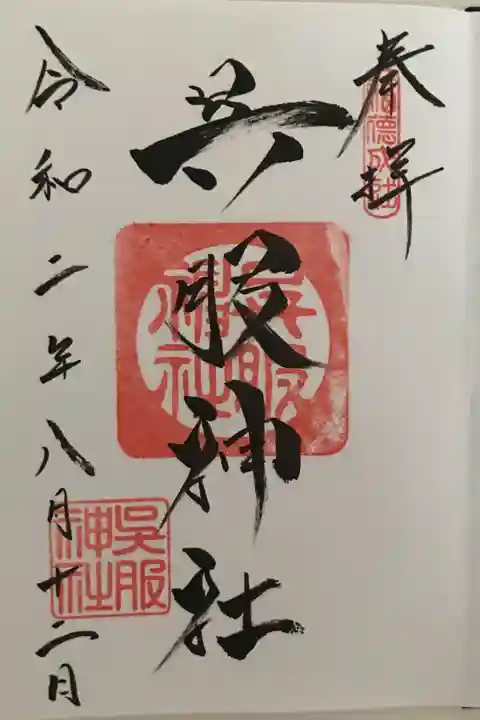 奉拝
呉服神社
呉服神社
令和二年八月十二日
吳服神社